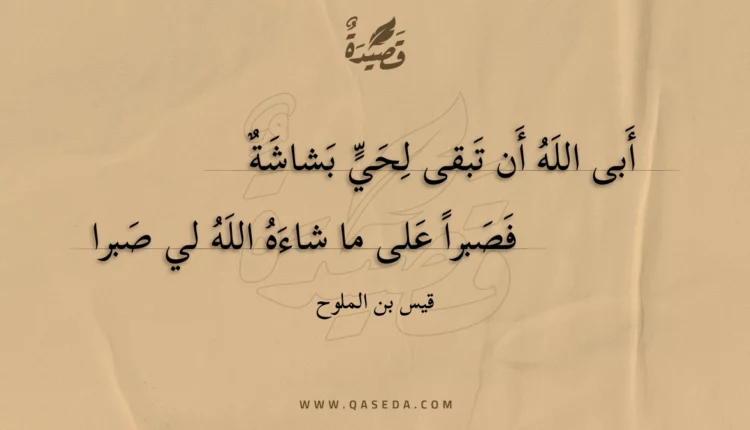 قَصِيدَةٌ
أَبى اللَهُ أَن تَبقى لِحَيٍّ بَشاشَةٌ
فَصَبراً عَلى ما شاءَهُ اللَهُ لي صَبرا
قيس بن الملوح
WWW.QASEDA.COM